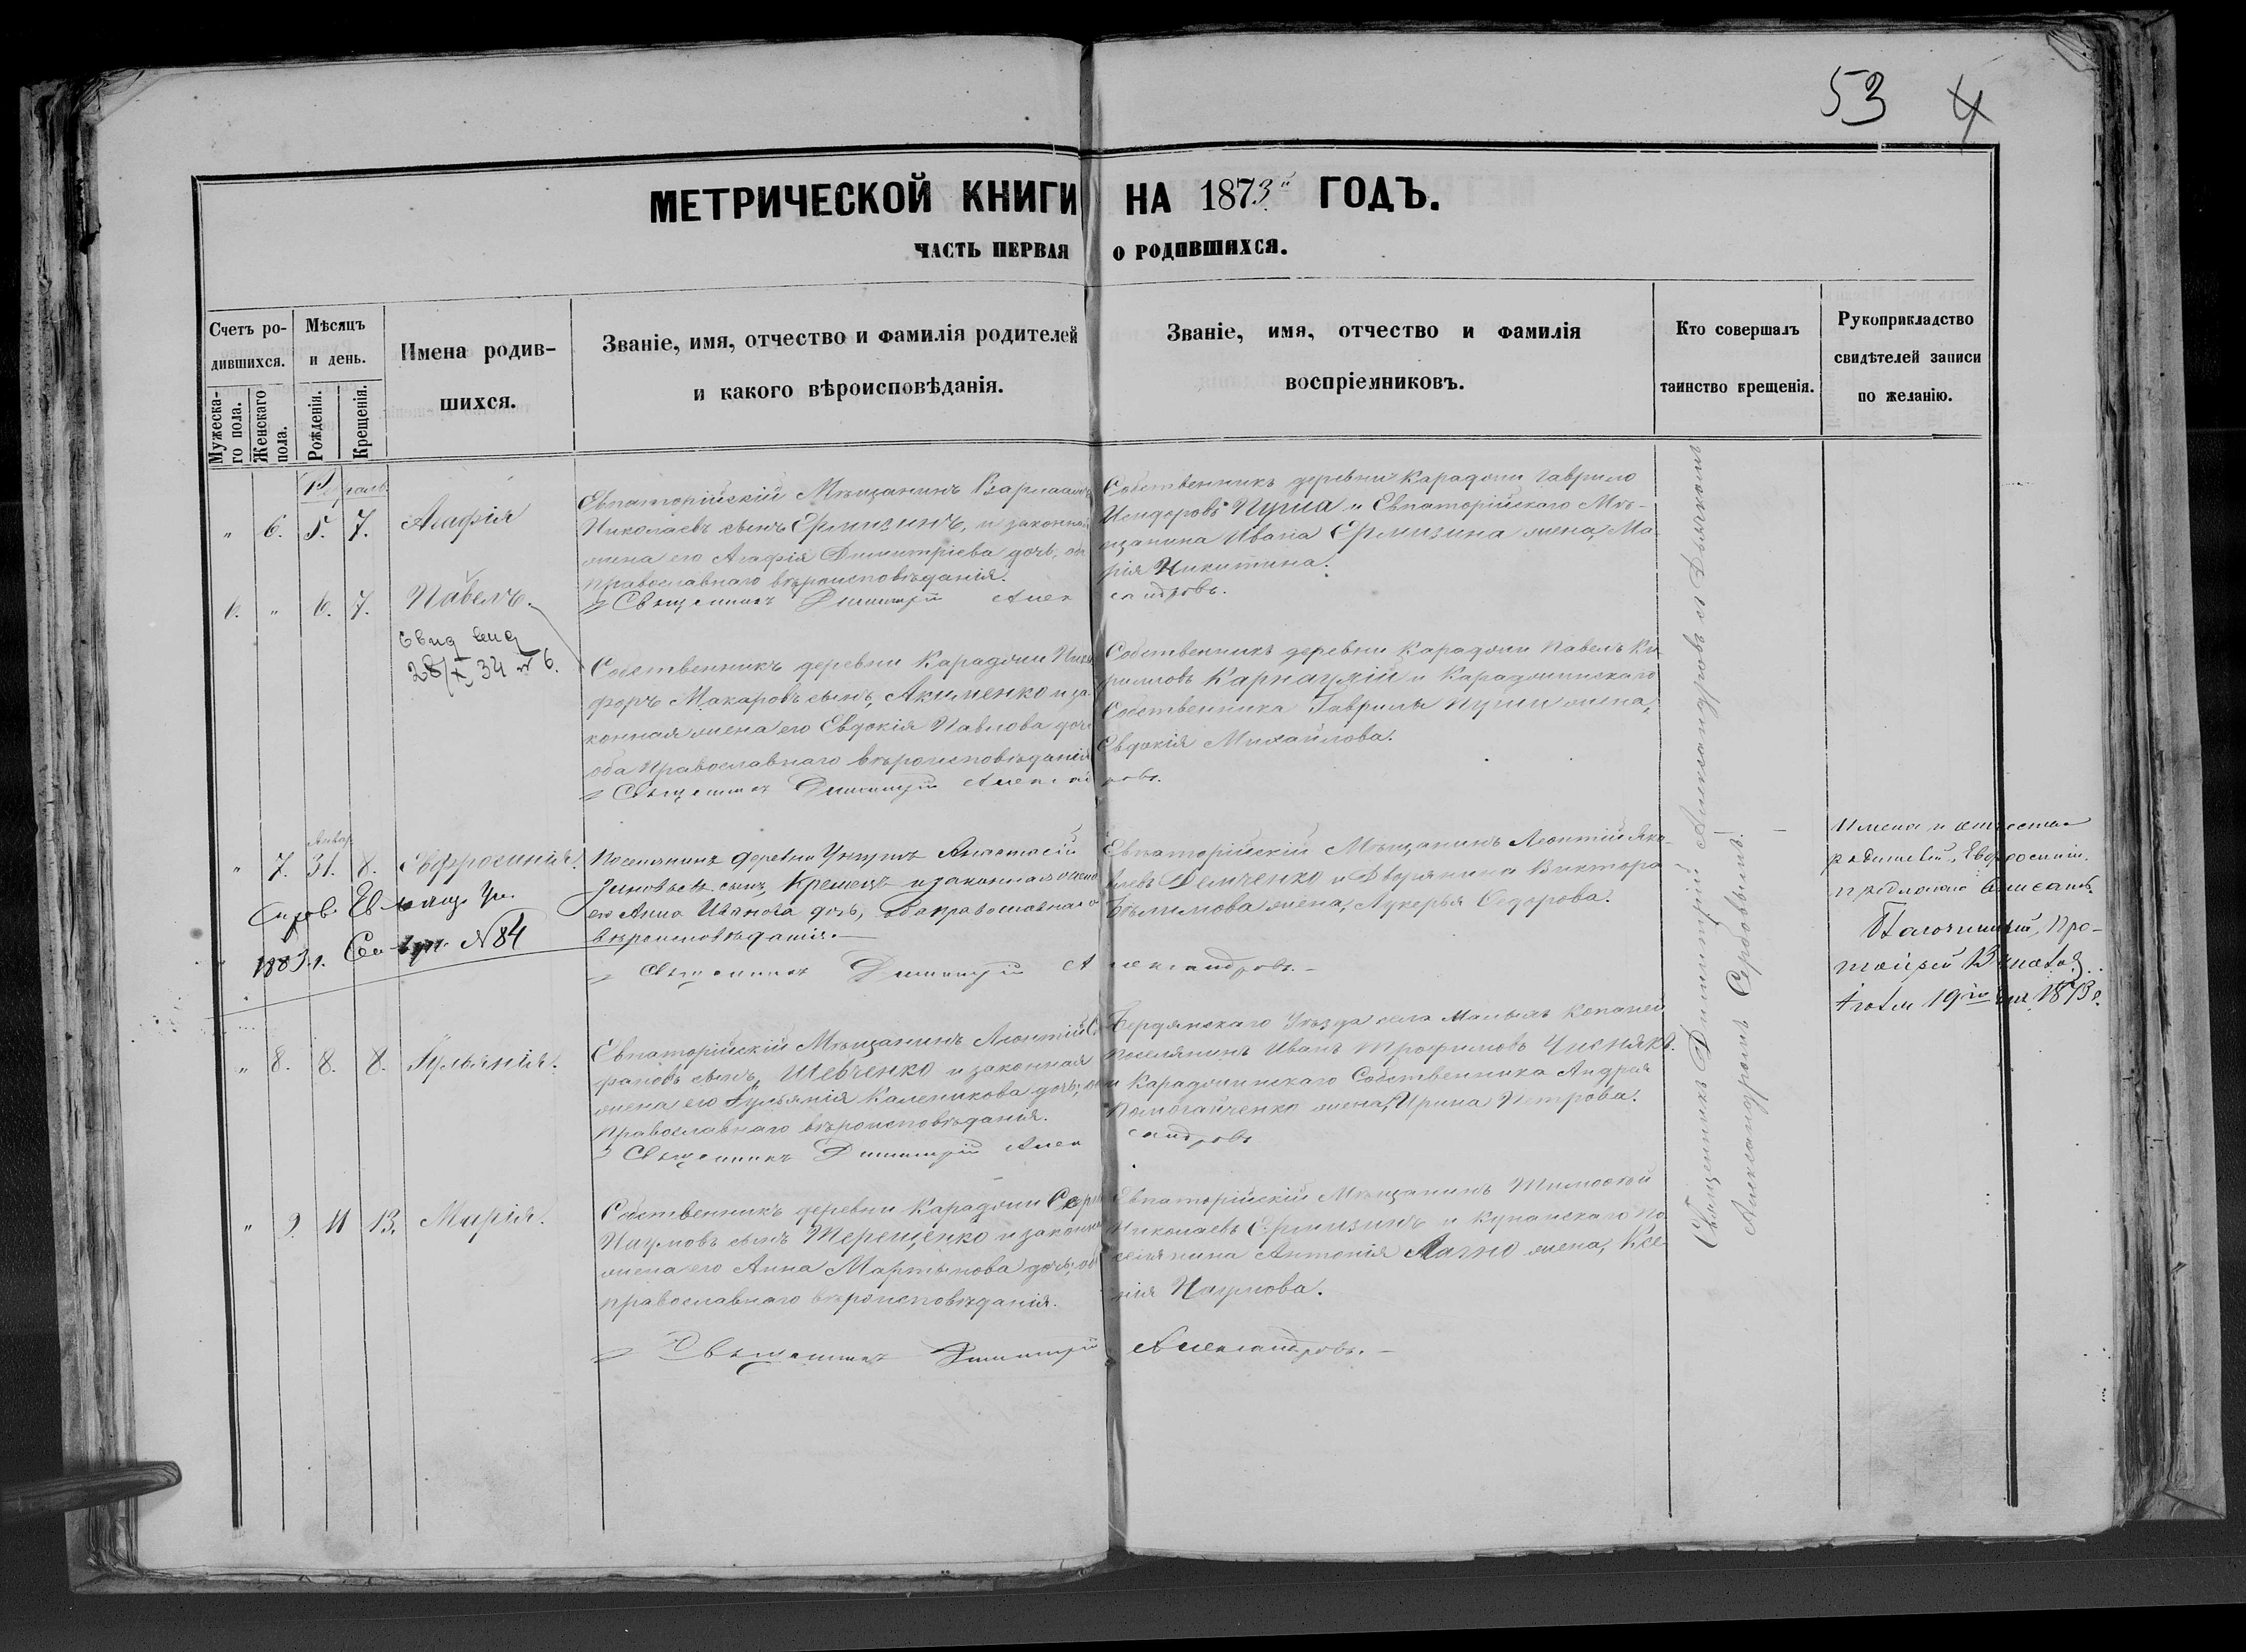 53 4
МЕТРИЧЕСКОЙ КНИГИ НА 1873й ГОДЪ.
ЧАСТЬ ПЕРВАЯ О РОДИВШИХСЯ.
Счетъ ро-
дившихся.
Мужеска-
го пола.
Женскаго
пола.
Мѣсяцъ
и день.
Рожденія.
Крещенія.
Имена родив-
шихся.
Званіе, имя, отчество и фамилія родителей
и какого вѣроисповѣданія.
Званіе, имя, отчество и фамилія
воспріемниковъ.
Кто совершалъ
таинство крещенія.
Рукоприкладство
свидѣтелей записи
по желанію.
" 6. 5. 7. Агафія
Евпаторійскій Мѣщанинъ Варлаамъ
Николаевъ сынъ Ермизинъ, и законная
жена его Агафія Димитріева дочь, оба
православнаго вѣроисповѣданія.
Собственникъ деревни Караджи Гаврило
Исидоровъ Пуша и Евпаторійскаго Мѣ-
щанина Ивана Ермизина жена, Ма-
рія Никитина.
Священникъ Димитрій Александровъ.
6. " 6. 7. Павелъ.
28/X 34 № 6.
Собственникъ деревни Караджи Ники-
форъ Макаровъ сынъ, Акименко и за-
конная жена его Евдокія Павлова дочь
оба православнаго вѣроисповѣданія
Собственникъ деревни Караджи Павелъ Ки-
риловъ Карнаухій и Караджинскаго
Собственника Гаврилы Пуши жена,
Евдокія Михайлова.
Священникъ Димитрій Александровъ.
Январ.
" 7. 31. 8. Евфросинія.
1883 г. № 84
Поселянинъ деревни
Зиновьевъ сынъ, Кремецъ и законная жена
его Анна Иванова дочь, оба православнаго
вѣроисповѣданія.
Евпаторійскій Мѣщанинъ Леонтій Яко-
влевъ Демченко и Дворянина Виктора
жена, Лукерья Сидорова.
Священникъ Димитрій Александровъ.
Имена и отчества
родителей Евфросиніи
Благочинный, Про-
тоіерей
19го 1873 г.
" 8. 8. 8. Іульянія.
Евпаторійскій Мѣщанинъ Леонтій
сынъ, Шевченко и законная
жена его Іульянія Каленикова дочь, оба
православнаго вѣроисповѣданія.
Бердянскаго Уѣзда села Малыхъ Копаней
поселянинъ Иванъ Трофимовъ Чиснякъ.
и Караджинскаго Собственника Андрея
Помогайченко жена, Ирина Петрова.
Священникъ Димитрій Александровъ
" 9. 11 13. Марія.
Собственникъ деревни Караджи
Наумовъ сынъ Терещенко и законная
жена его Анна Мартынова дочь, оба
православнаго вѣроисповѣданія.
Евпаторійскій Мѣщанинъ Тимофей
Николаевъ Ермизинъ и Кунанскаго по-
селянина Антонія Лагно жена, Ксе-
нія Наумова.
Священникъ Димитрій Александровъ.
Священникъ Димитрій Александровъ съ Дьячкомъ
Александромъ Сербовымъ.